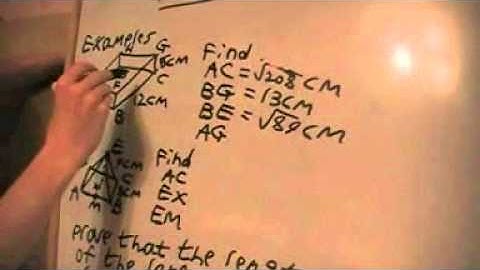 Examples
H G
5CM
F C
12CM
B
Find
AC = √208 CM
BG = 13CM
BE = √89 CM
AG
E
A M B
Find
AC
EX
EM
prove that the length
of the